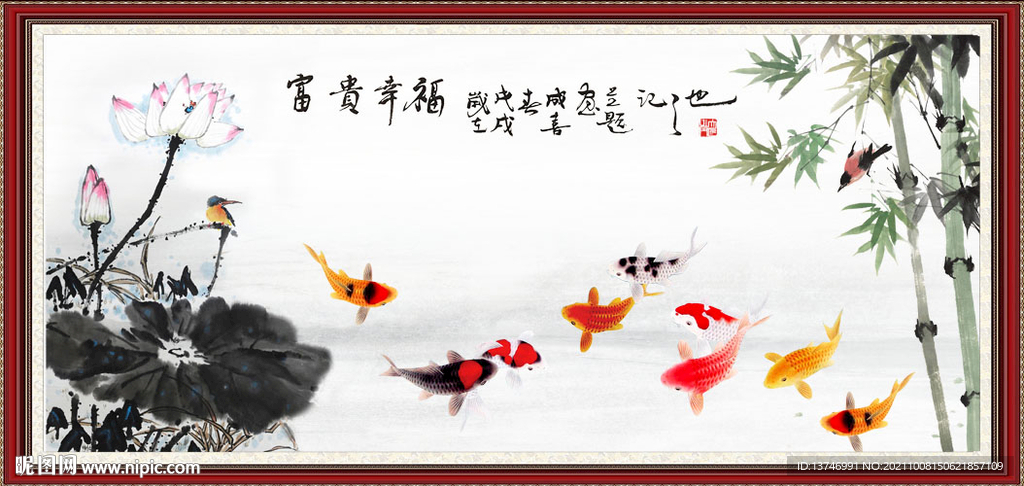 富貴幸福
歲在戊戌春成喜畫並題記之也
昵图网 www.nipic.com
ID:13746991 NO:20211008150621857109